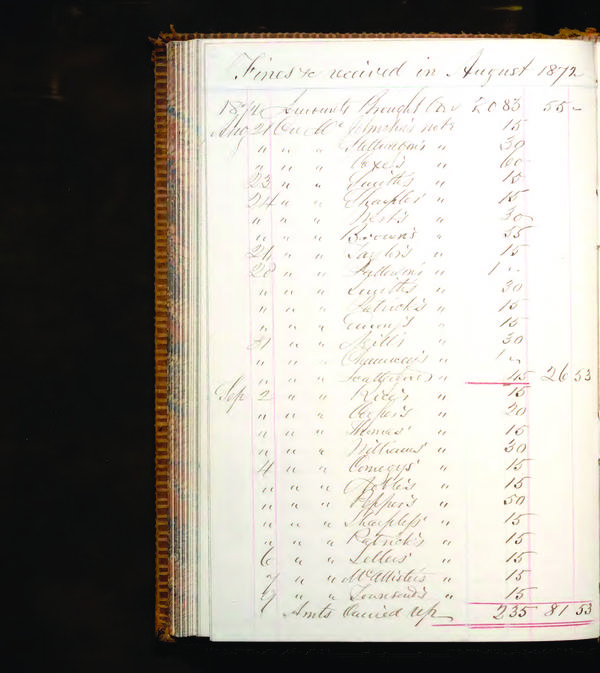 Fines &c received in August 1872
1872 Amounts Brought Over 20 83 55 -
Aug 21 Over Mc Johnston's note 15
" " " " 30
" " " Coxe's " 60
23 " " Smith's " 15
24 " " Sharples' " 15
" " " West's " 30
" " " Brown's " 35
26 " " Taylor's " 15
28 " " Patterson's " 1 -
" " " Smith's " 30
" " " Patrick's " 15
" " " " 15
31 " " Mill's " 30
" " " " 1 -
" " " " 45 26 53
Sep 2 " " Rice's " 15
" " " Cooper's " 20
" " " Thomas' " 15
" " " Williams' " 30
4 " " Comegys' " 15
" " " Noble's " 15
" " " Pepper's " 50
" " " Sharpless' " 15
" " " Patrick's " 15
6 " " Sellers' " 15
7 " " McAllister's " 15
9 " " Townsend's " 15
Amts Carried Up 2 35 81 53